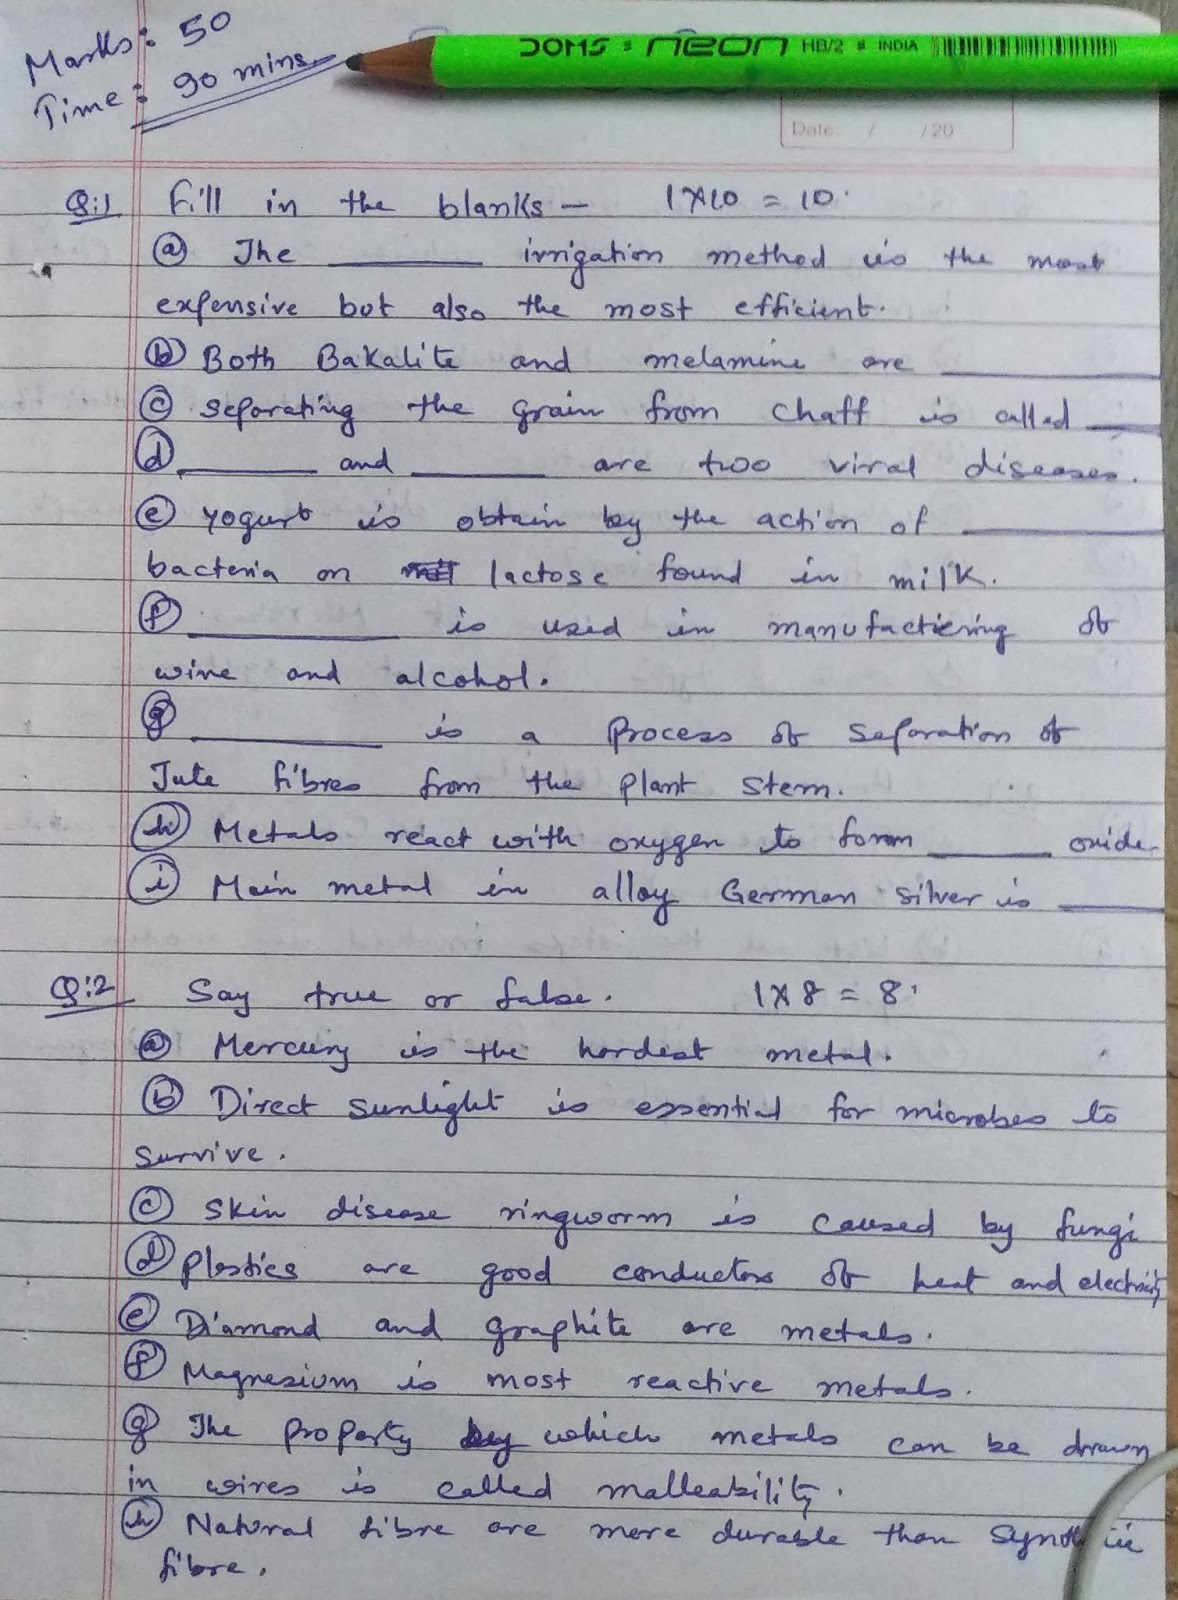 Marks: 50
DOMS neon HB/2 INDIA
Time: 90 mins.
Date: / /20
Q:1 Fill in the blanks — 1x10 = 10.
(a) The ________ irrigation method is the most
expensive but also the most efficient.
(b) Both Bakalite and melamine are ________
(c) Separating the grain from chaff is called ____
(d) ________ and ________ are two viral diseases.
(e) Yogurt is obtain by the action of ________
bacteria on lactose found in milk.
(f) ________ is used in manufactiering of
wine and alcohol.
(g) ________ is a process of separation of
Jute fibres from the plant stem.
(h) Metals react with oxygen to form ________ oxide.
(i) Main metal in alloy German silver is ____
Q:2 Say true or false. 1x8 = 8.
(a) Mercury is the hardest metal.
(b) Direct sunlight is essential for microbes to
survive.
(c) Skin disease ringworm is caused by fungi
(d) Plastics are good conductors of heat and electricity
(e) Diamond and graphite are metals.
(f) Magnesium is most reactive metals.
(g) The property by which metals can be drawn
in wires is called malleability.
(h) Natural fibre are more durable than
fibre.